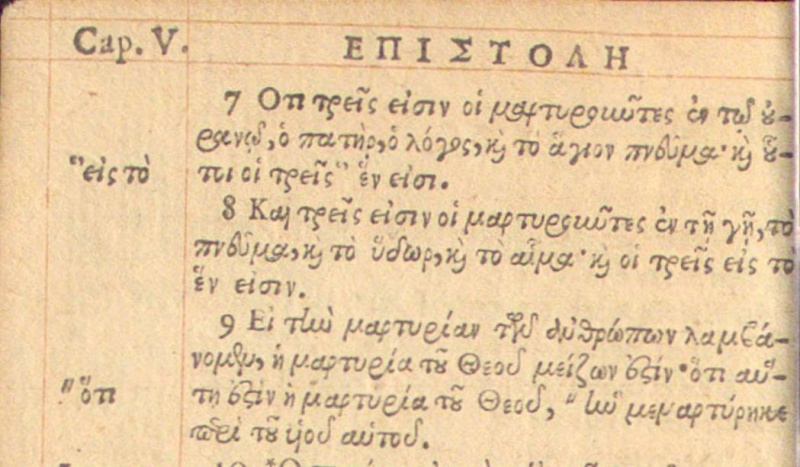 Cap. V. ΕΠΙΣΤΟΛΗ
7 Ὅτι τρεῖς εἰσιν οἱ μαρτυροῦντες ἐν τῷ οὐ-
ρανῷ, ὁ πατὴρ, ὁ λόγος, καὶ τὸ ἅγιον πνεῦμα· καὶ οὗ-
"εἰς τὸ
τοι οἱ τρεῖς " ἕν εἰσι.
8 Καὶ τρεῖς εἰσιν οἱ μαρτυροῦντες ἐν τῇ γῇ, τὸ
πνεῦμα, καὶ τὸ ὕδωρ, καὶ τὸ αἷμα· καὶ οἱ τρεῖς εἰς τὸ
ἕν εἰσιν.
9 Εἰ τὴν μαρτυρίαν τῶν ἀνθρώπων λαμβά-
νομεν, ἡ μαρτυρία τοῦ Θεοῦ μείζων ἐστίν· ὅτι αὕ-
"ὅτι
τη ἐστὶν ἡ μαρτυρία τοῦ Θεοῦ, " ἣν μεμαρτύρηκε
περὶ τοῦ υἱοῦ αὐτοῦ.